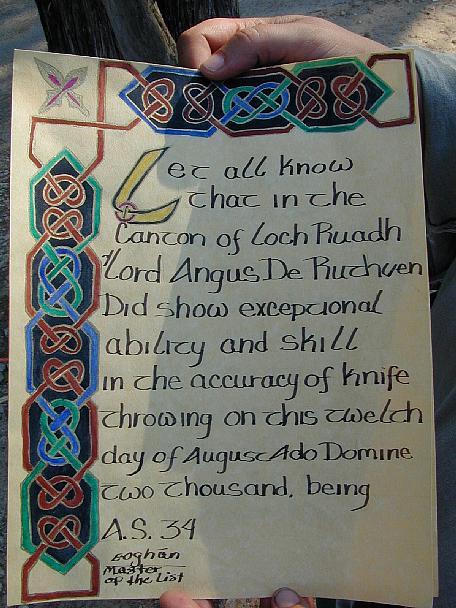 Let all know
that in the
Canton of Loch Ruadh
Lord Angus De Ruthven
Did show exceptional
ability and skill
in the accuracy of knife
throwing on this twelth
day of August Ado Domine
two thousand, being
A.S. 34
Eoghan
Master
of the List